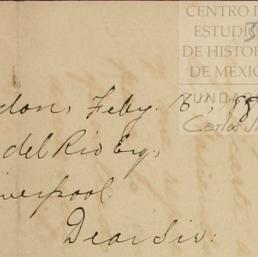 CENTRO D
ESTUDIO
DE HISTOR
DE MEXIC
FUNDAC
don, Feby. 8
del Rio Esq,
iverpool.
Dear Sir: